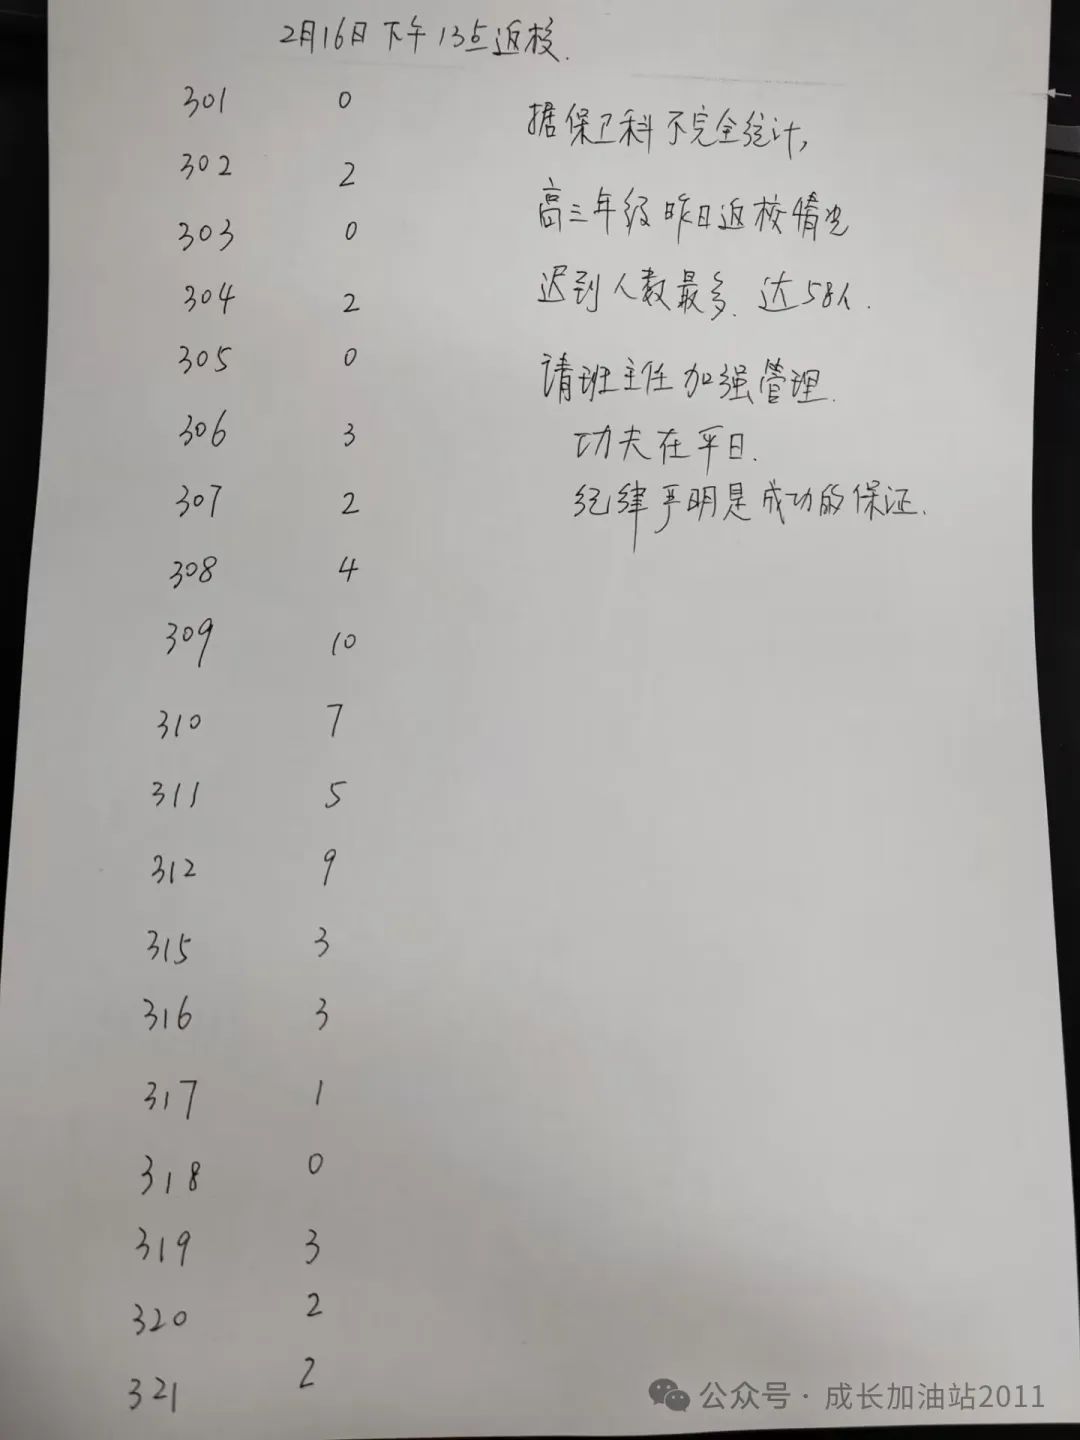 2月16日下午13点返校.
301 0
302 2
303 0
304 2
305 0
306 3
307 2
308 4
309 10
310 7
311 5
312 9
315 3
316 3
317 1
318 0
319 3
320 2
321 2
据保卫科不完全统计,
高三年级昨日返校情况
迟到人数最多.达58人.
请班主任加强管理.
功夫在平日.
纪律严明是成功的保证.
公众号·成长加油站2011